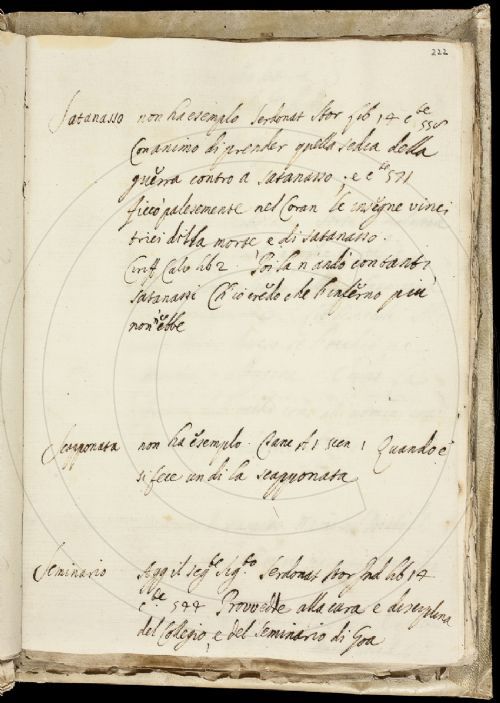 222
Satanasso non ha esempio Serdonat Stor lib 14 c.te 558
Con animo di prender quella sedia della
guerra contro a Satanasso . e c.te 571
ficcò palesemente nel Coran le insegne vinci
trici della morte e di Satanasso .
Ciriff Calv lib 2 . Poi la n'andò con tanti
Satanassi Ch'io credo che l'inferno più
non n'ebbe
Scapponata non ha esempio . at 1 scen 1 Quando e'
si fece un dì la scapponata
Seminario Agg il seg.te sig.to Serdonat Stor Ind lib 14
c.te 544 Provvedde alla cura e disciplina
del Collegio e del Seminario di Goa